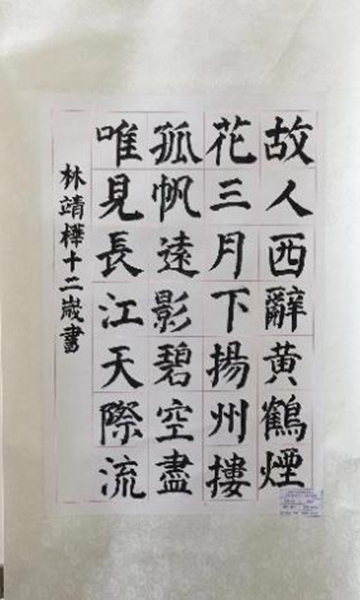 故人西辭黃鶴煙
花三月下揚州摟
孤帆遠影碧空盡
唯見長江天際流
林靖樺十二歲書